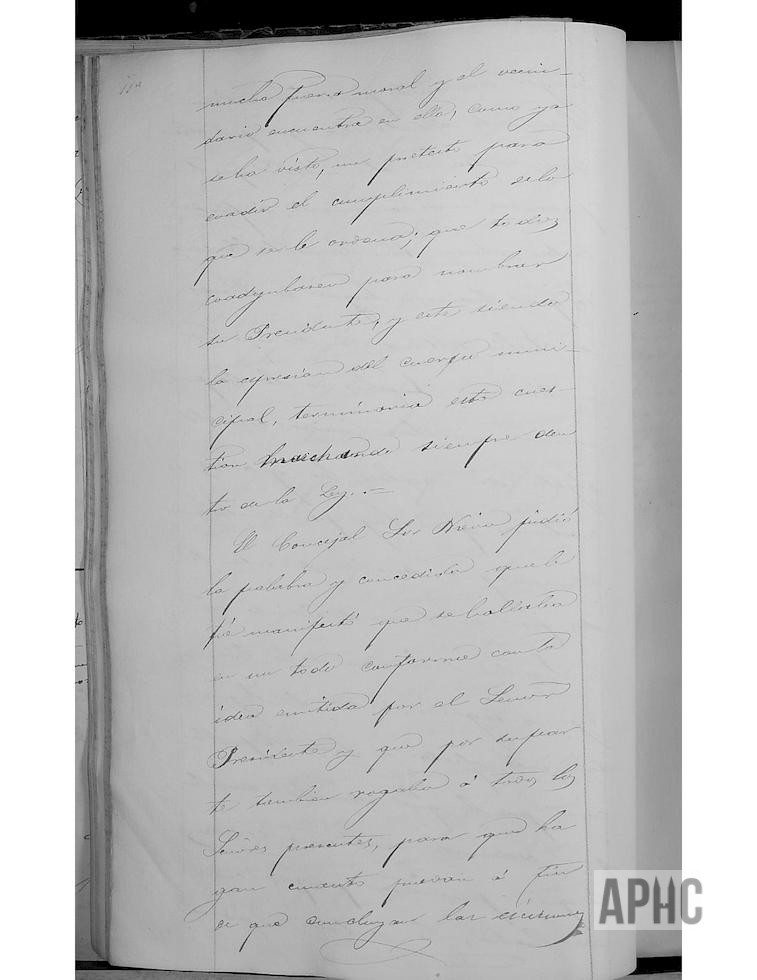 114
mucha fuerza moral y el vecin-
dario encuentra en ello, como ya
se ha visto, un pretesto para
evadir el cumplimiento de lo
que se le ordena; que todos
coadyubaren para nombrar
su Presidente, y este siendo
la espresion del cuerpo muni-
cipal, terminaria esta cues-
tion marchando siempre den
tro de la Ley. =
El Concejal Sor Neira pidió
la palabra y concedida que le
fué manifestó que se hallaba
en un todo conforme con la
idea emitida por el Señor
Presidente y que por su par
te tambien rogaba á todos los
Señores presentes, para que ha
gan cuanto puedan á fin
de que concluyan las escisiones
APHC